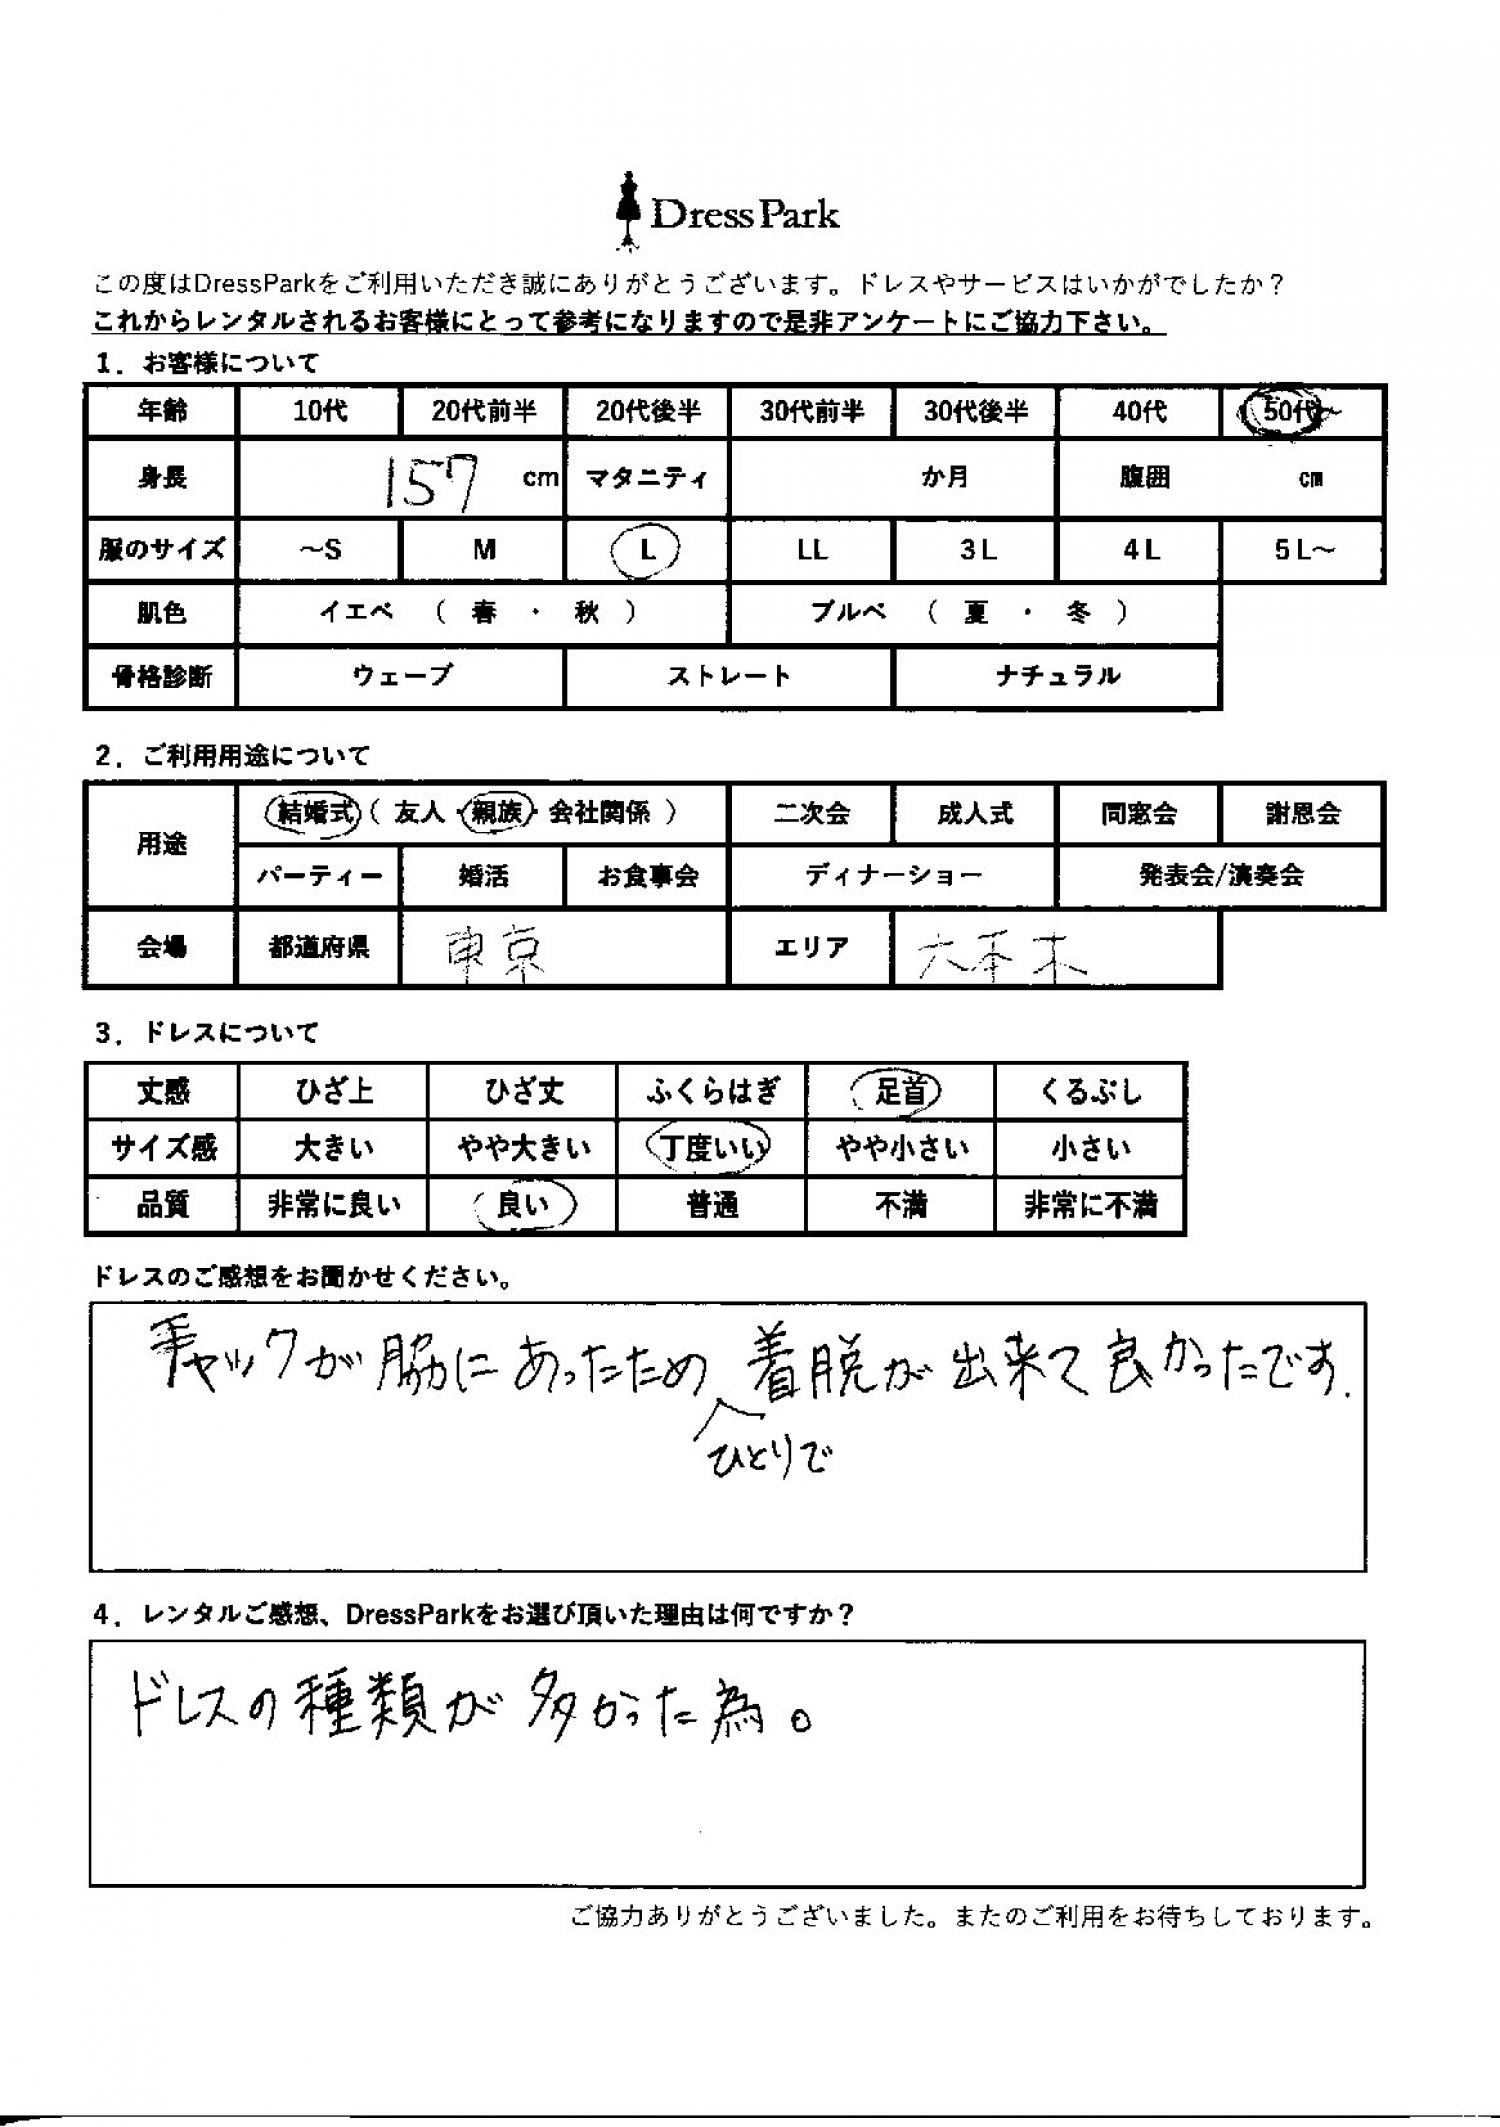 DressPark
この度はDressParkをご利用いただき誠にありがとうございます。ドレスやサービスはいかがでしたか？
これからレンタルされるお客様にとって参考になりますので是非アンケートにご協力下さい。
1．お客様について
年齢 10代 20代前半 20代後半 30代前半 30代後半 40代 50代～
身長 157 cm マタニティ か月 腹囲 cm
服のサイズ ～S M L LL 3L 4L 5L～
肌色 イエベ （ 春 ・ 秋 ） ブルべ （ 夏 ・ 冬 ）
骨格診断 ウェーブ ストレート ナチュラル
2．ご利用用途について
用途 結婚式（ 友人・親族・会社関係 ） 二次会 成人式 同窓会 謝恩会
パーティー 婚活 お食事会 ディナーショー 発表会/演奏会
会場 都道府県 東京 エリア 六本木
3．ドレスについて
丈感 ひざ上 ひざ丈 ふくらはぎ 足首 くるぶし
サイズ感 大きい やや大きい 丁度いい やや小さい 小さい
品質 非常に良い 良い 普通 不満 非常に不満
ドレスのご感想をお聞かせください。
チャックが脇にあったため 着脱が出来て良かったです.
ひとりで
4．レンタルご感想、DressParkをお選び頂いた理由は何ですか？
ドレスの種類が多かった為。
ご協力ありがとうございました。またのご利用をお待ちしております。